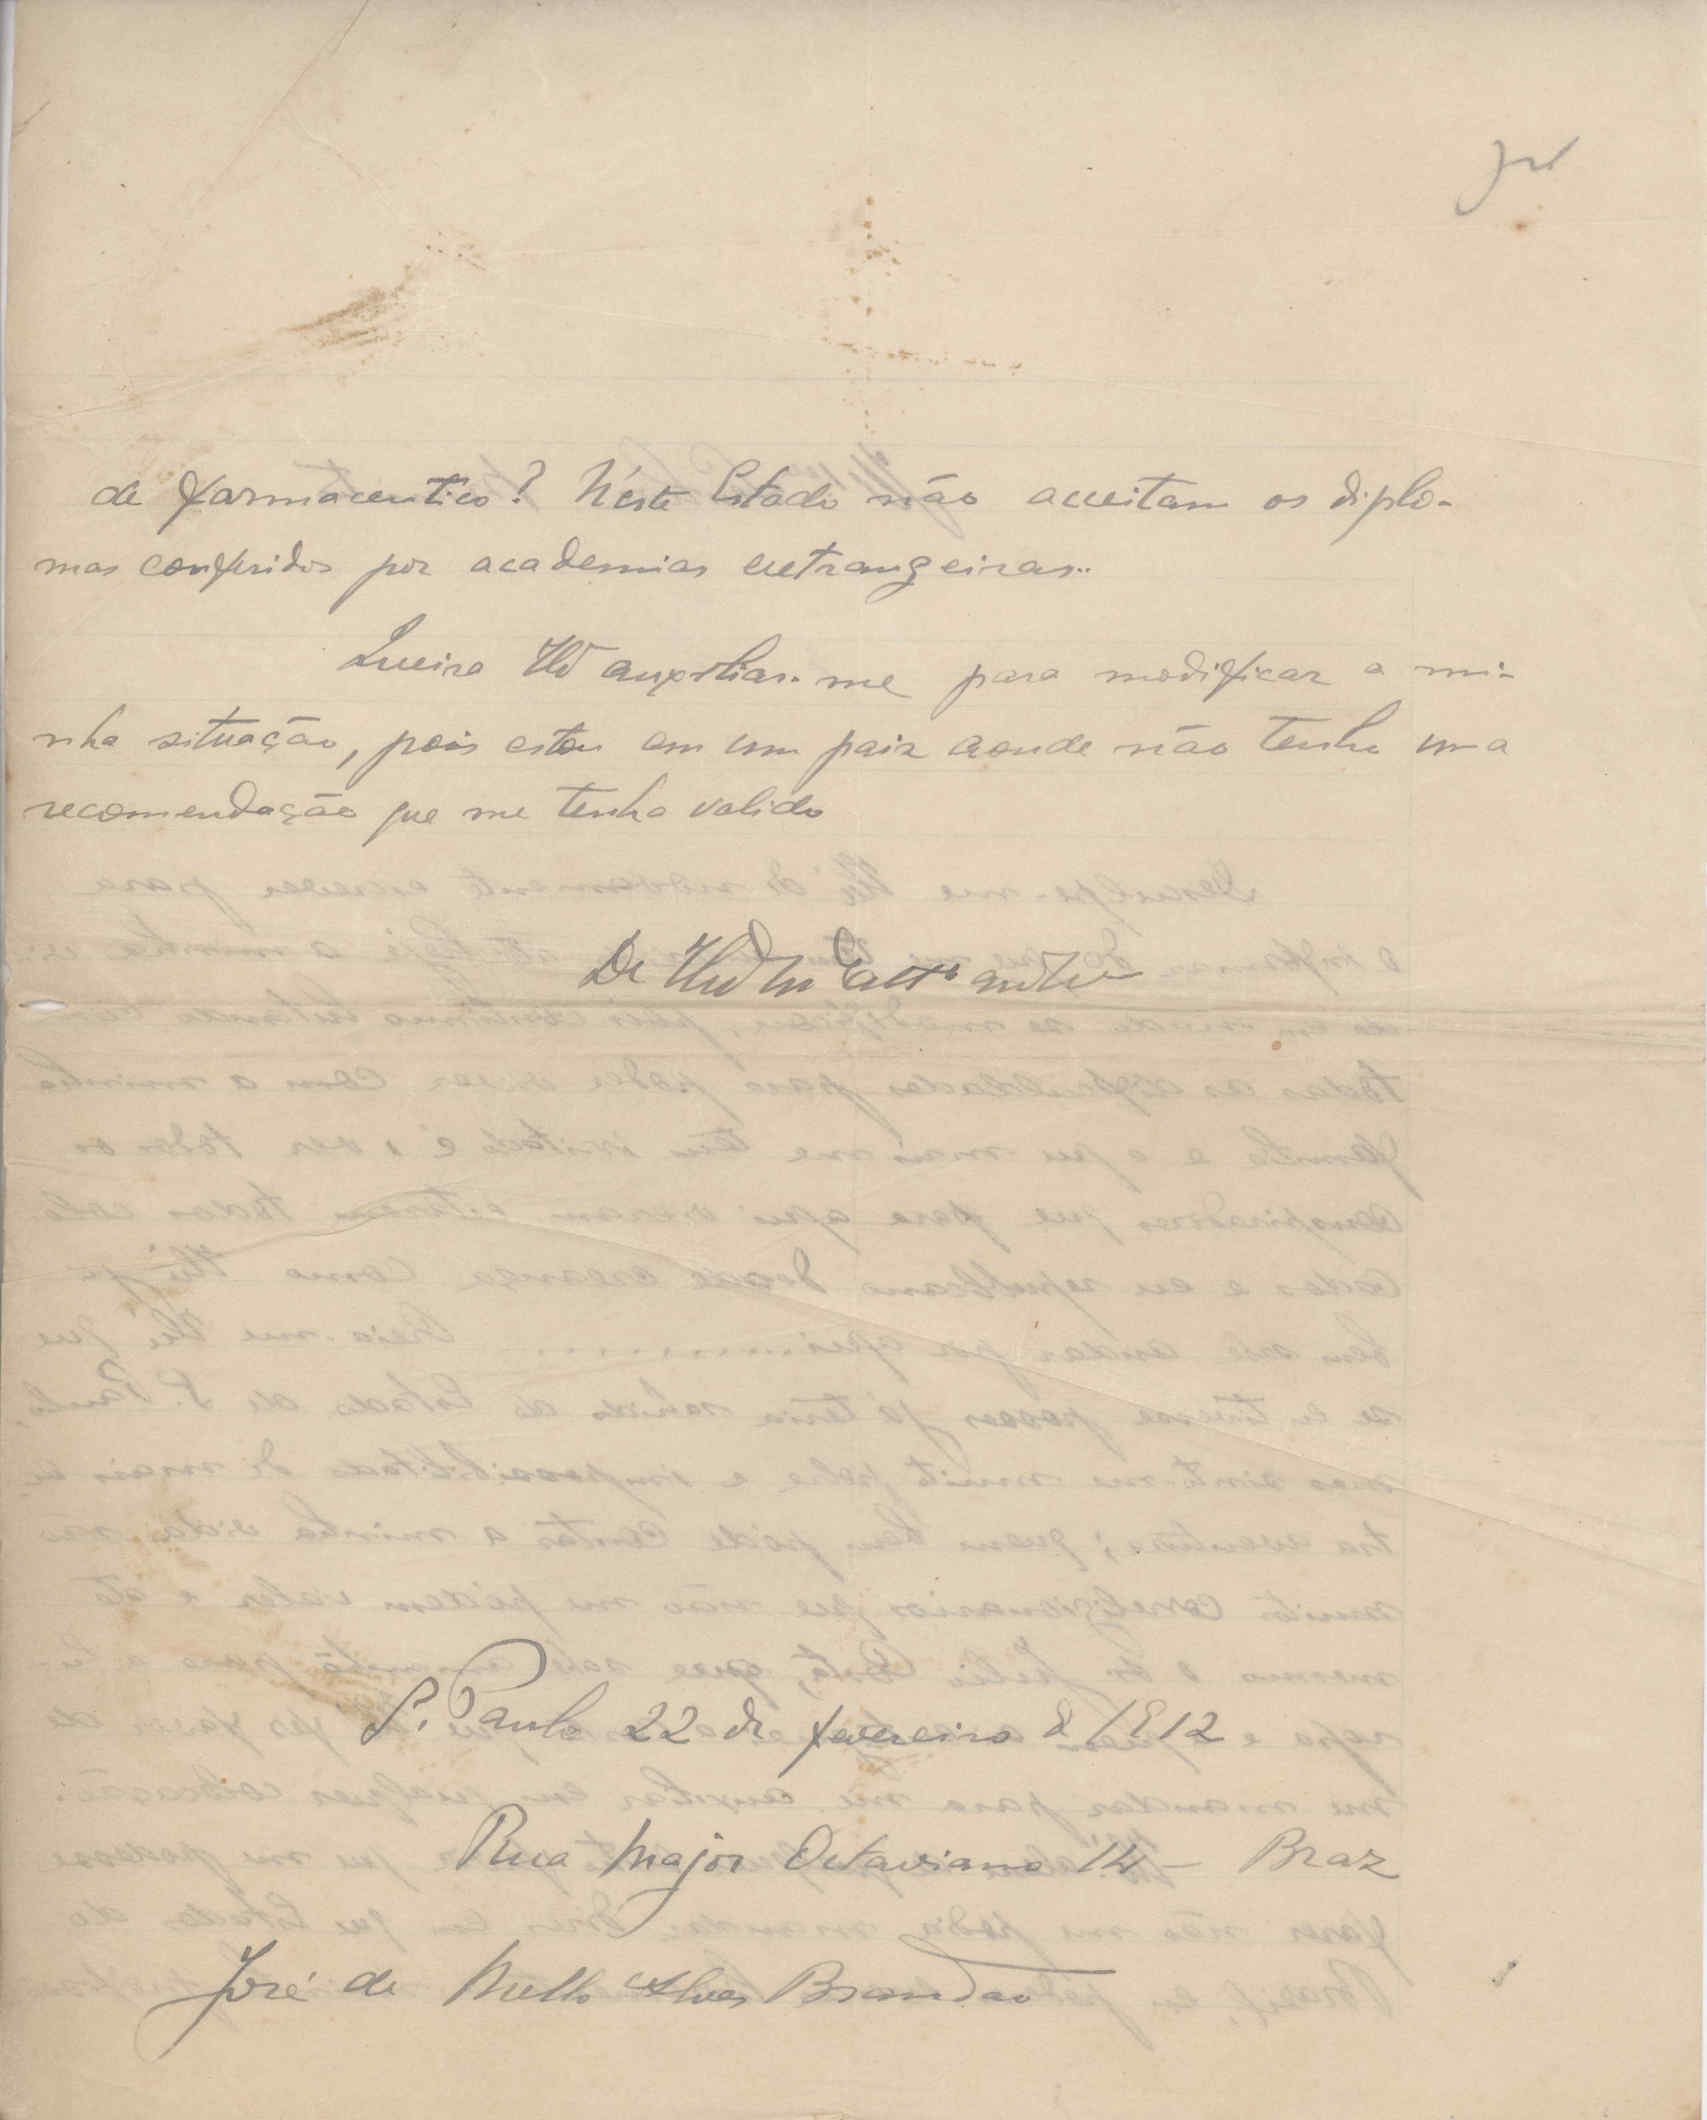 de farmaceutico? N'este Estado não acceitam os diplo-
mas conferidos por academias extrangeiras..
Queira auxiliar-me para modificar a mi-
nha situação, pois estou em um paiz aonde não tenho uma
recomendação que me tenha valido
De
S. Paulo 22 de fevereiro d 1912
Rua Major Octaviano 14 - Braz
José de Mello Alves Brandão